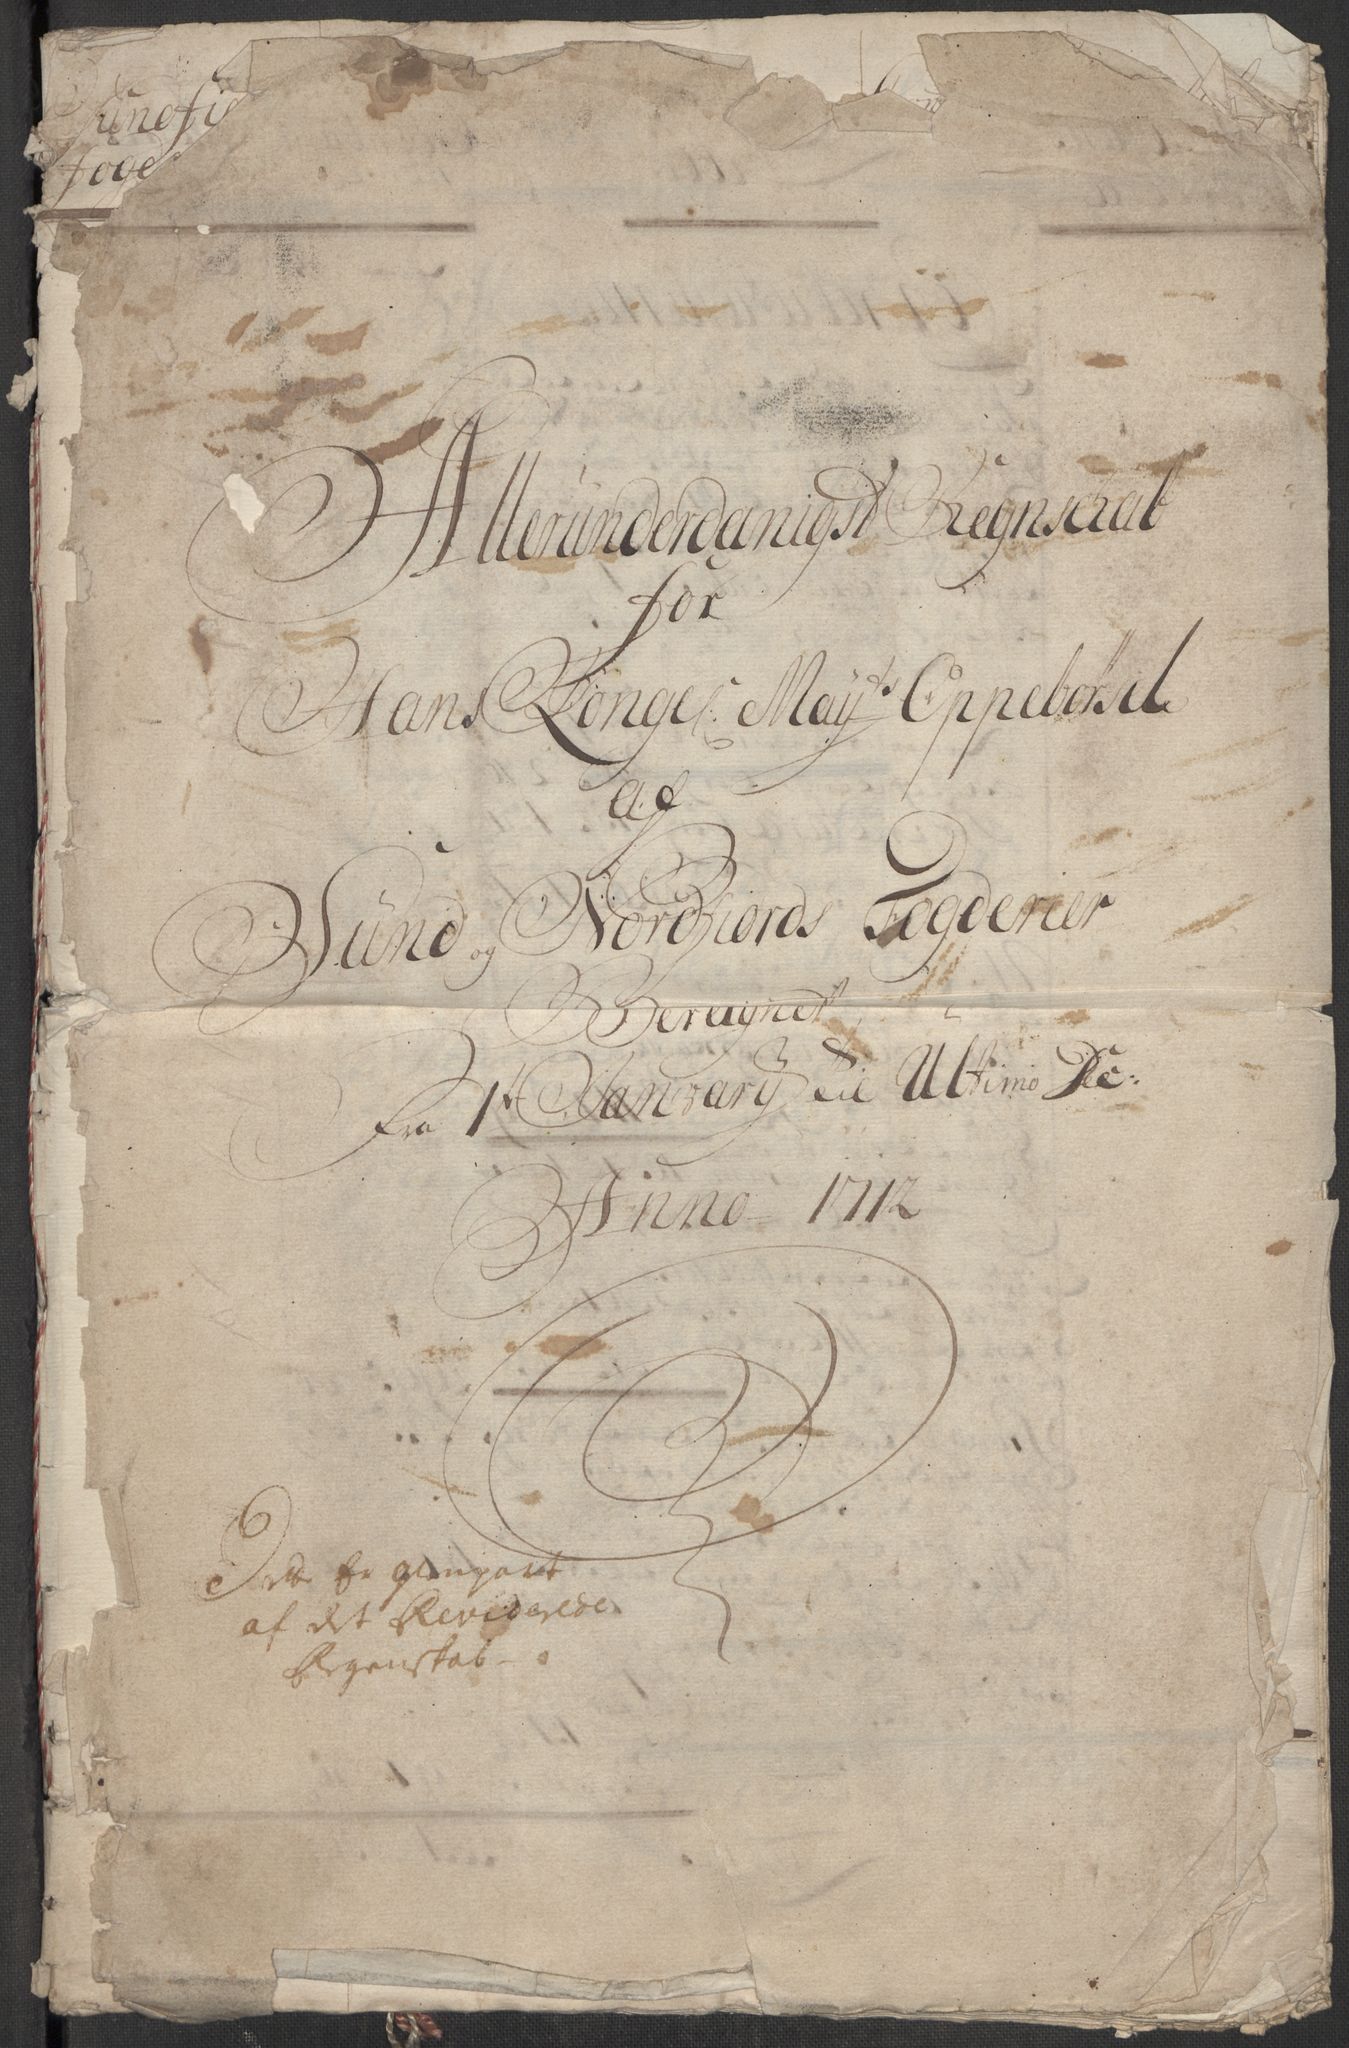 Sundfi
foge
Alleründerdanigst Regnschab
for
Hans Konge: Mayts Oppebørsel
af
Sünd og Nordfiords Fogderier
Bereignet
Fra 1t January til Ultimo Dec:
Anno 1712
Dette er genpart
af det Reviderede
Regenskab